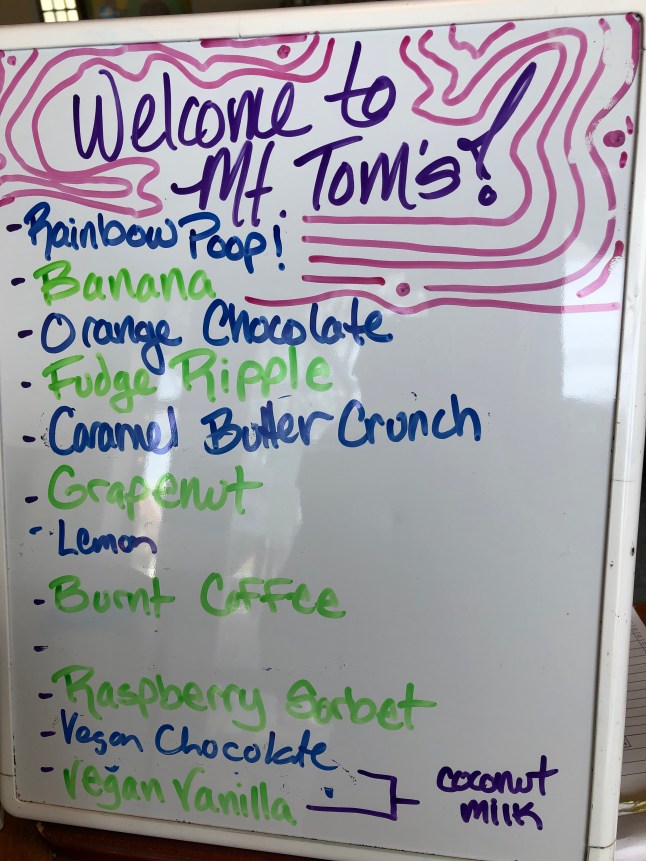 Welcome to
Mt Tom's!
- Rainbow Poop!
- Banana
- Orange Chocolate
- Fudge Ripple
- Caramel Butter Crunch
- Grapenut
- Lemon
- Burnt Coffee
-
- Raspberry Sorbet
- Vegan Chocolate
- Vegan Vanilla
coconut
milk